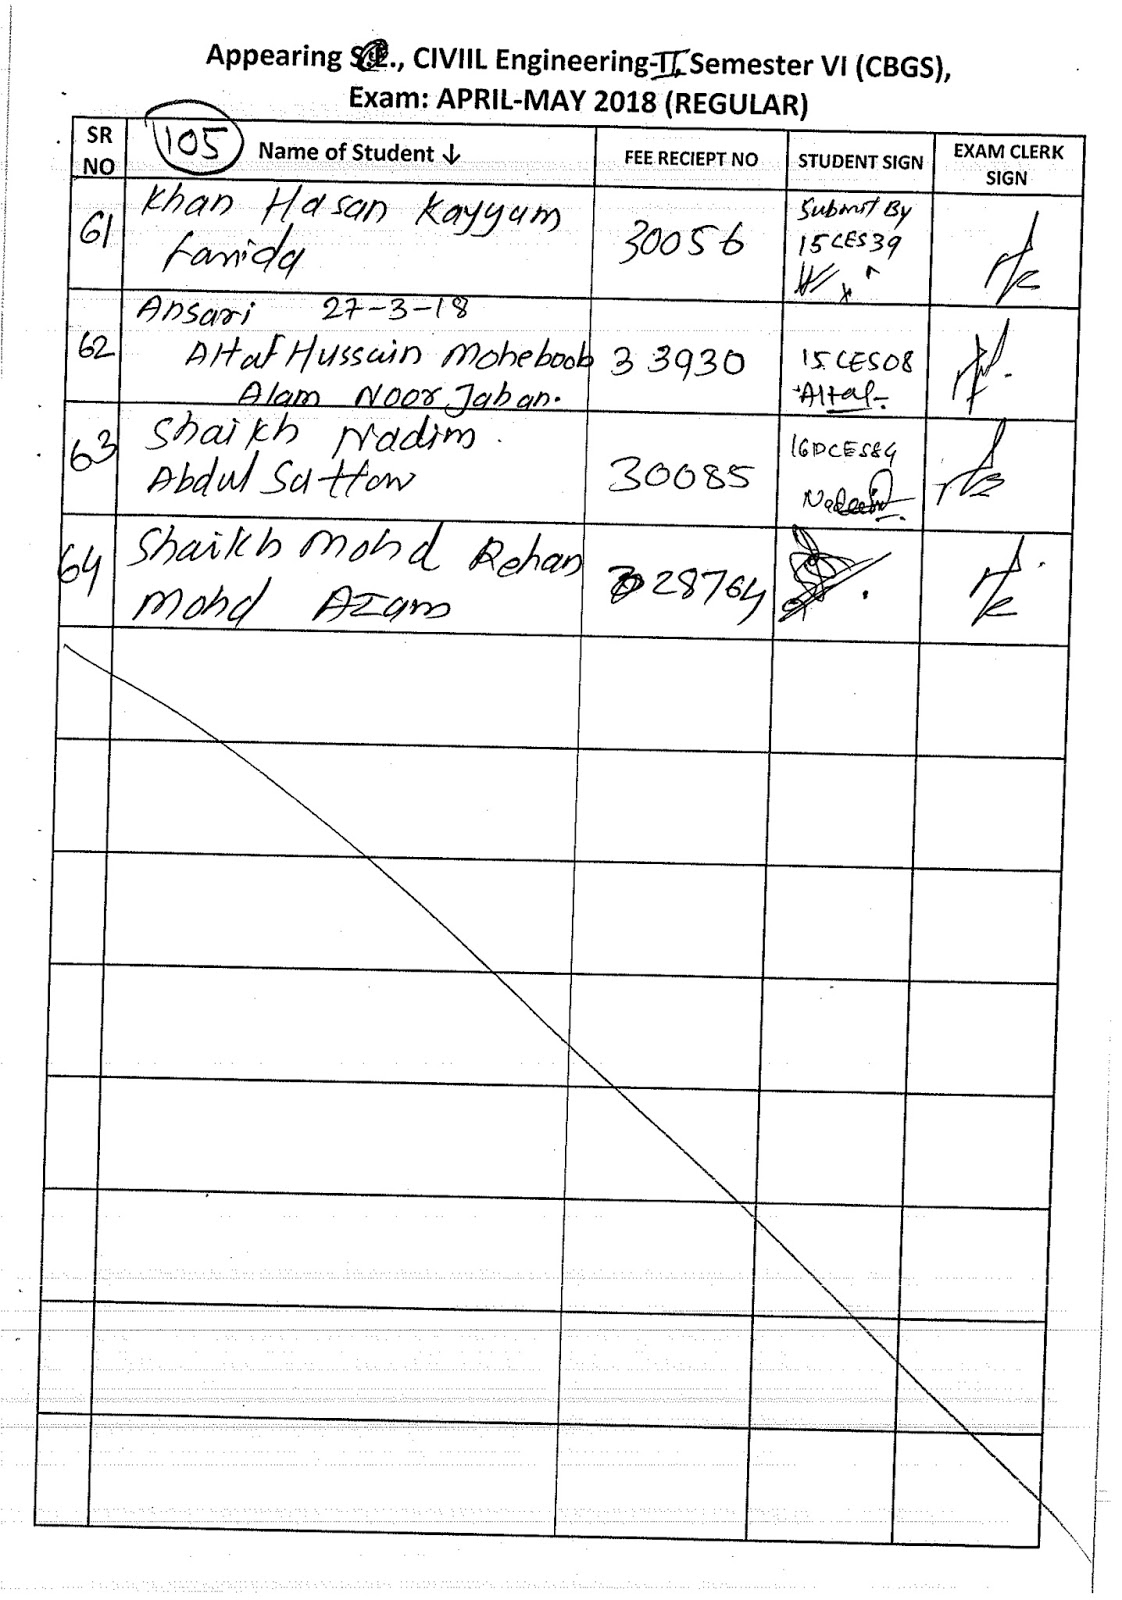 Appearing S.E., CIVIIL Engineering-II, Semester VI (CBGS),
Exam: APRIL-MAY 2018 (REGULAR)
SR NO 105 Name of Student ↓ FEE RECIEPT NO STUDENT SIGN EXAM CLERK SIGN
61 Khan Hasan Kayyum 30056 Submit By
Farida 15CES39
Ansari 27-3-18
62 Altaf Hussain Moheboob 33930 15CES08
Alam Noor Jahan. Altaf
63 Shaikh Nadim 16DCES84
Abdul Sattar 30085 Nadeem
64 Shaikh Mohd Rehan 28764
Mohd Azam